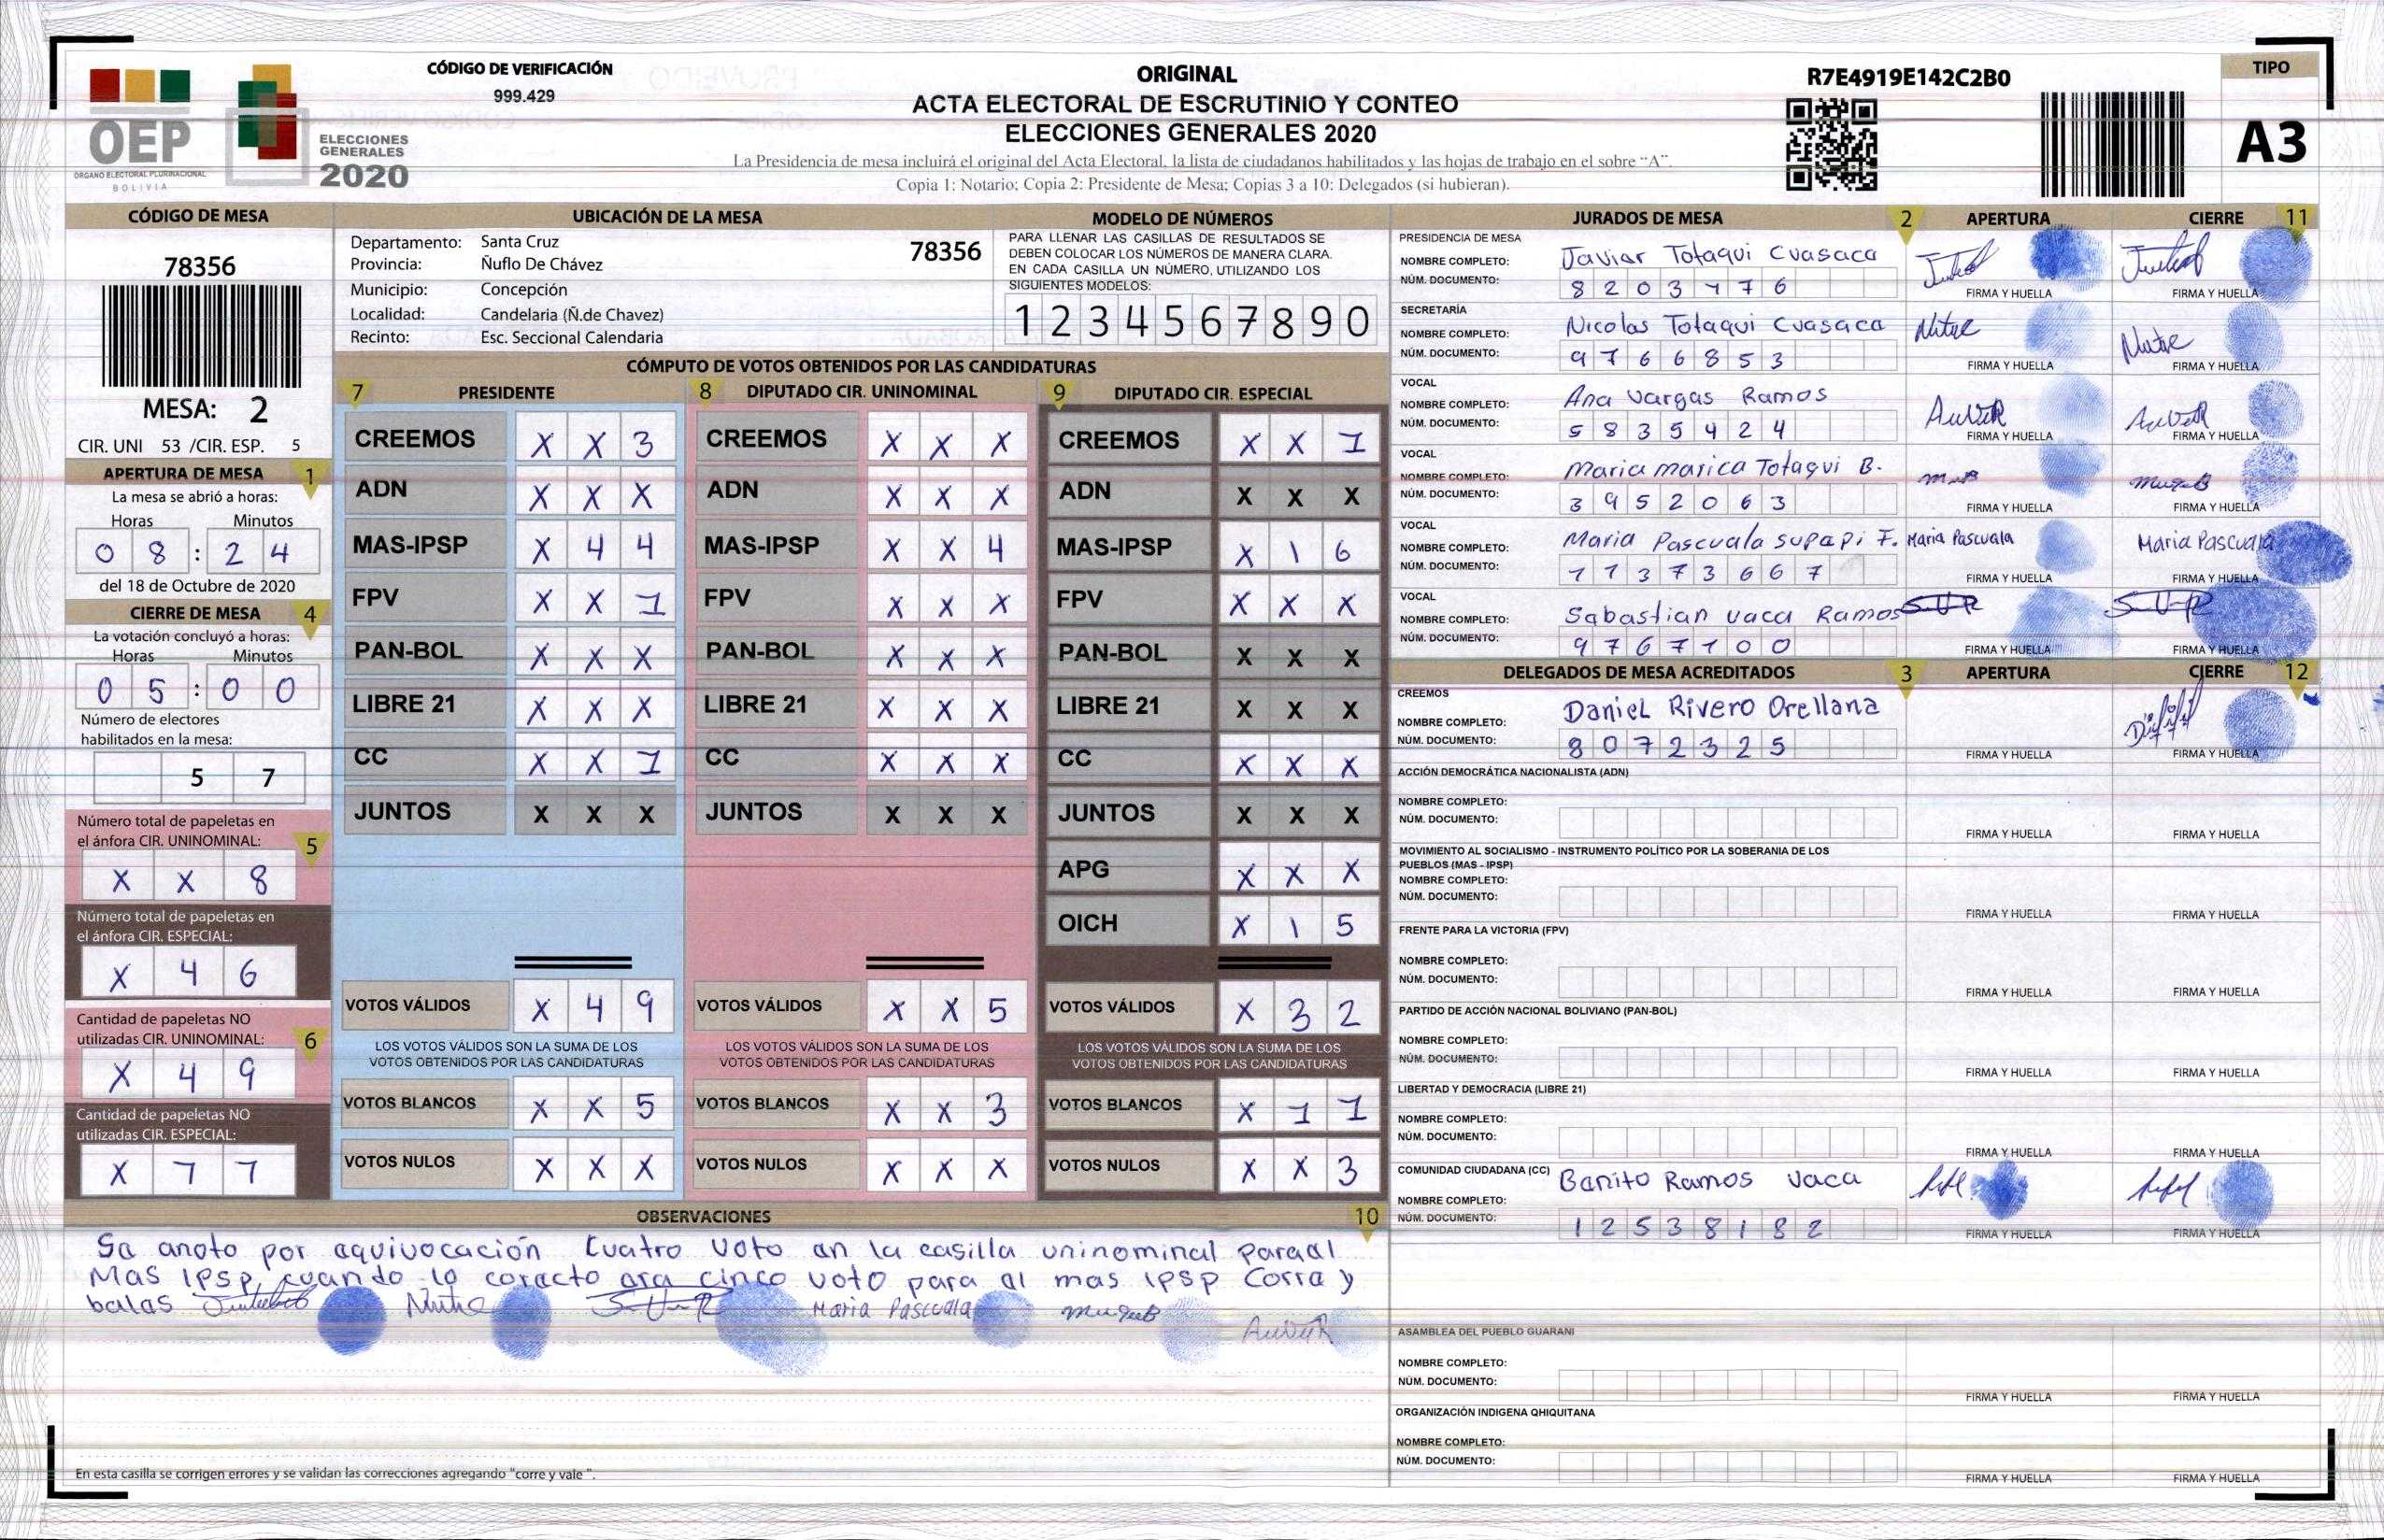 CÓDIGO DE VERIFICACIÓN
999.429
OEP
ORGANO ELECTORAL PLURINACIONAL
BOLIVIA
ELECCIONES
GENERALES
2020
ORIGINAL
ACTA ELECTORAL DE ESCRUTINIO Y CONTEO
ELECCIONES GENERALES 2020
La Presidencia de mesa incluirá el original del Acta Electoral, la lista de ciudadanos habilitados y las hojas de trabajo en el sobre "A".
Copia 1: Notario; Copia 2: Presidente de Mesa; Copias 3 a 10: Delegados (si hubieran).
R7E4919E142C2B0
TIPO
A3
CÓDIGO DE MESA
78356
MESA: 2
CIR. UNI 53 /CIR. ESP. 5
APERTURA DE MESA 1
La mesa se abrió a horas:
Horas Minutos
0 8 : 2 4
del 18 de Octubre de 2020
CIERRE DE MESA 4
La votación concluyó a horas:
Horas Minutos
0 5 : 0 0
Número de electores
habilitados en la mesa:
5 7
Número total de papeletas en
el ánfora CIR. UNINOMINAL: 5
X X 8
Número total de papeletas en
el ánfora CIR. ESPECIAL:
X 4 6
Cantidad de papeletas NO
utilizadas CIR. UNINOMINAL: 6
X 4 9
Cantidad de papeletas NO
utilizadas CIR. ESPECIAL:
X 7 7
UBICACIÓN DE LA MESA
Departamento: Santa Cruz 78356
Provincia: Ñuflo De Chávez
Municipio: Concepción
Localidad: Candelaria (Ñ.de Chavez)
Recinto: Esc. Seccional Calendaria
MODELO DE NÚMEROS
PARA LLENAR LAS CASILLAS DE RESULTADOS SE
DEBEN COLOCAR LOS NÚMEROS DE MANERA CLARA.
EN CADA CASILLA UN NÚMERO, UTILIZANDO LOS
SIGUIENTES MODELOS:
1 2 3 4 5 6 7 8 9 0
CÓMPUTO DE VOTOS OBTENIDOS POR LAS CANDIDATURAS
7 PRESIDENTE
CREEMOS X X 3
ADN X X X
MAS-IPSP X 4 4
FPV X X 1
PAN-BOL X X X
LIBRE 21 X X X
CC X X 1
JUNTOS X X X
VOTOS VÁLIDOS X 4 9
LOS VOTOS VÁLIDOS SON LA SUMA DE LOS
VOTOS OBTENIDOS POR LAS CANDIDATURAS
VOTOS BLANCOS X X 5
VOTOS NULOS X X X
8 DIPUTADO CIR. UNINOMINAL
CREEMOS X X X
ADN X X X
MAS-IPSP X X 4
FPV X X X
PAN-BOL X X X
LIBRE 21 X X X
CC X X X
JUNTOS X X X
VOTOS VÁLIDOS X X 5
LOS VOTOS VÁLIDOS SON LA SUMA DE LOS
VOTOS OBTENIDOS POR LAS CANDIDATURAS
VOTOS BLANCOS X X 3
VOTOS NULOS X X X
9 DIPUTADO CIR. ESPECIAL
CREEMOS X X 1
ADN X X X
MAS-IPSP X 1 6
FPV X X X
PAN-BOL X X X
LIBRE 21 X X X
CC X X X
JUNTOS X X X
APG X X X
OICH X 1 5
VOTOS VÁLIDOS X 3 2
LOS VOTOS VÁLIDOS SON LA SUMA DE LOS
VOTOS OBTENIDOS POR LAS CANDIDATURAS
VOTOS BLANCOS X 1 1
VOTOS NULOS X X 3
OBSERVACIONES 10
Sa anoto por aquivocación Cuatro Voto an la casilla uninominal Paraal
Mas IPSP, cuando lo coracto ara cinco voto para al mas IPSP Corra y
balas
Maria Pascuala
En esta casilla se corrigen errores y se validan las correcciones agregando "corre y vale ".
JURADOS DE MESA 2 APERTURA CIERRE 11
PRESIDENCIA DE MESA
NOMBRE COMPLETO: Javiar Totaqui Cvasaca
NÚM. DOCUMENTO: 8 2 0 3 4 7 6
FIRMA Y HUELLA FIRMA Y HUELLA
SECRETARÍA
NOMBRE COMPLETO: Nicolas Totaqui Cvasaca
NÚM. DOCUMENTO: 9 7 6 6 8 5 3
FIRMA Y HUELLA FIRMA Y HUELLA
VOCAL
NOMBRE COMPLETO: Ana Vargas Ramos
NÚM. DOCUMENTO: 5 8 3 5 4 2 4
FIRMA Y HUELLA FIRMA Y HUELLA
VOCAL
NOMBRE COMPLETO: Maria marica Totaqui B.
NÚM. DOCUMENTO: 3 9 5 2 0 6 3
FIRMA Y HUELLA FIRMA Y HUELLA
VOCAL
NOMBRE COMPLETO: Maria Pascuala supapi F. Maria Pascuala Maria Pascuala
NÚM. DOCUMENTO: 1 1 3 7 3 6 6 7
FIRMA Y HUELLA FIRMA Y HUELLA
VOCAL
NOMBRE COMPLETO: Sabastian vaca Ramos
NÚM. DOCUMENTO: 9 7 6 7 1 0 0
FIRMA Y HUELLA FIRMA Y HUELLA
DELEGADOS DE MESA ACREDITADOS 3 APERTURA CIERRE 12
CREEMOS
NOMBRE COMPLETO: Daniel Rivero Orellana
NÚM. DOCUMENTO: 8 0 7 2 3 2 5
FIRMA Y HUELLA FIRMA Y HUELLA
ACCIÓN DEMOCRÁTICA NACIONALISTA (ADN)
NOMBRE COMPLETO:
NÚM. DOCUMENTO:
FIRMA Y HUELLA FIRMA Y HUELLA
MOVIMIENTO AL SOCIALISMO - INSTRUMENTO POLÍTICO POR LA SOBERANIA DE LOS
PUEBLOS (MAS - IPSP)
NOMBRE COMPLETO:
NÚM. DOCUMENTO:
FIRMA Y HUELLA FIRMA Y HUELLA
FRENTE PARA LA VICTORIA (FPV)
NOMBRE COMPLETO:
NÚM. DOCUMENTO:
FIRMA Y HUELLA FIRMA Y HUELLA
PARTIDO DE ACCIÓN NACIONAL BOLIVIANO (PAN-BOL)
NOMBRE COMPLETO:
NÚM. DOCUMENTO:
FIRMA Y HUELLA FIRMA Y HUELLA
LIBERTAD Y DEMOCRACIA (LIBRE 21)
NOMBRE COMPLETO:
NÚM. DOCUMENTO:
FIRMA Y HUELLA FIRMA Y HUELLA
COMUNIDAD CIUDADANA (CC)
NOMBRE COMPLETO: Banito Ramos Vaca
NÚM. DOCUMENTO: 1 2 5 3 8 1 8 2
FIRMA Y HUELLA FIRMA Y HUELLA
ASAMBLEA DEL PUEBLO GUARANI
NOMBRE COMPLETO:
NÚM. DOCUMENTO:
FIRMA Y HUELLA FIRMA Y HUELLA
ORGANIZACIÓN INDIGENA QHIQUITANA
NOMBRE COMPLETO:
NÚM. DOCUMENTO:
FIRMA Y HUELLA FIRMA Y HUELLA